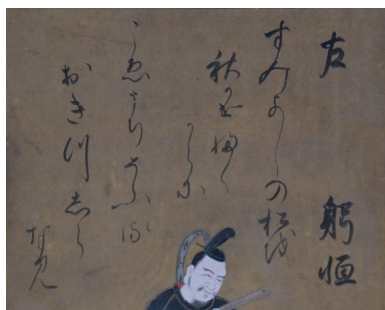 左 躬恒
すみよしの松を
秋風ふく
からに
こゑうちそふる
おきつしら
なみ